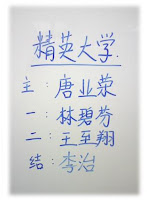 精英大学.
主:唐业荣
一:林碧芬
二:王至翔
结:李治